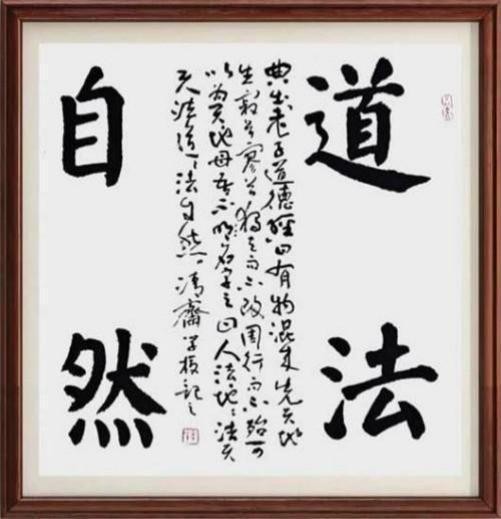 道法
典出老子道德經曰有物混成先天地
生寂兮寥兮独立而不改周行而不殆可
以为天地母吾不名字之曰人法地〻法天
天法道〻法自然清齋記之
自然